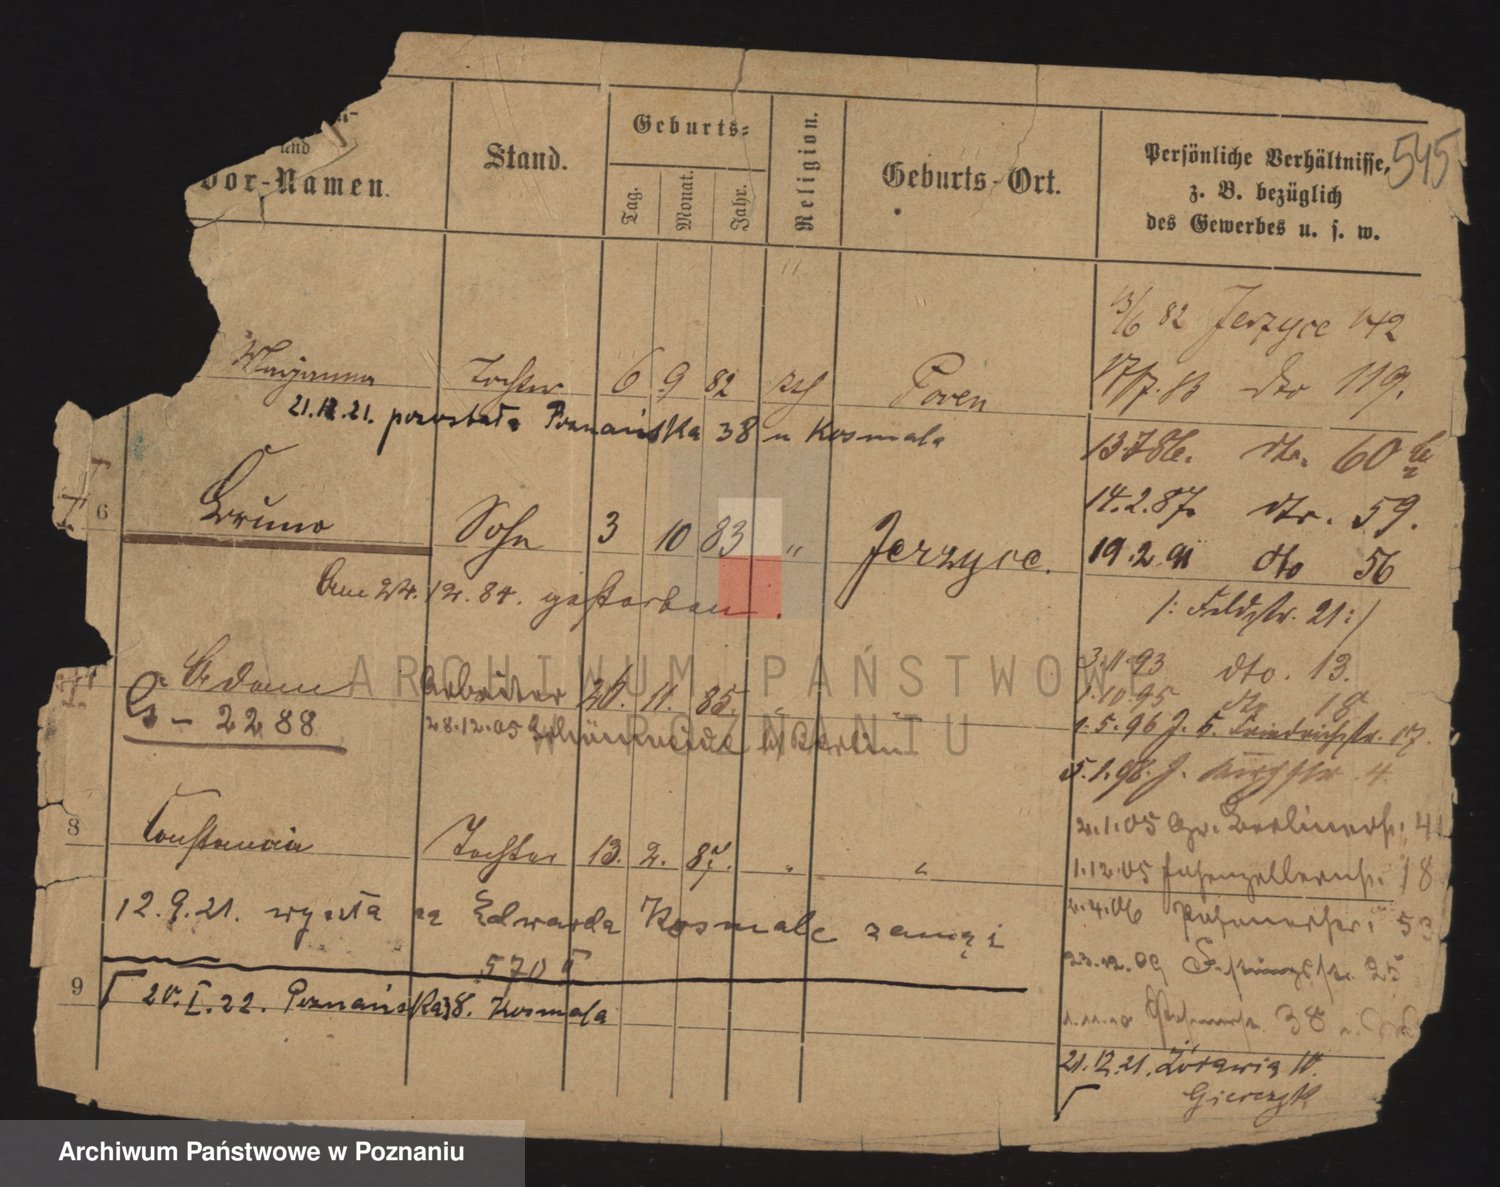 545
und
Vor-Namen.
Stand.
Geburts-
Tag.
Monat.
Jahr.
Religion.
Geburts-Ort.
Persönliche Verhältnisse,
z. B. bezüglich
des Gewerbes u. s. w.
13/6 82 Jerzyce 142
Marjanna Tochter 6 9 82 Posen
17/7. 83 dto 119.
21.12.21. pozostała Poznańska 38 u Kosmala
13 7 86. dto. 60
6 Bruno Sohn 3 10 83 " Jerzyce.
14.2.87. dto. 59.
19.2.91 dto 56
/: Feldstr. 21 :/
Am 24.12.84. gestorben.
3.11.93 dto. 13.
Adam Arbeiter 20. 11. 85. "
1.10.95 dto 18
G - 2288
28.12.05 Berlin
1.5.96 J. 5. Friedrichstr. 17.
5.1.98. J. Kirchstr. 4.
2.1.05 Gr. Berlinerstr. 41
8 Constancia Tochter 13. 2. 87. " "
1.12.05 Hohenzollernstr. 18
12.9.21. wyszła za Edwarda Kosmale zamąż
2.4.06 Posenerstr. 53
570
23.12.09 25
9 20.I.22. Poznańska 38. Kosmala
38
21.12.21. Żórawia 10.
Gierczyk
ARCHIWUM PAŃSTWOWE
W POZNANIU
Archiwum Państwowe w Poznaniu